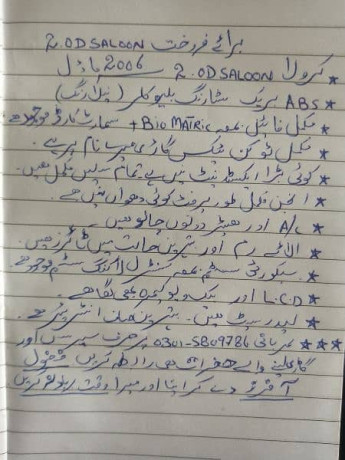 برائے فروخت 2.0D SALOON
کرولا 2.0D SALOON 2006 ماڈل
★ ABS بریک سٹارنگ بلیو کلر (پاورنگ)
★ مکمل فائل بمعہ BioMATRic + سمارٹ کارڈ موجود ہے
★ مکمل ٹوکن ٹیکس گاڑی میرے نام پر ہے۔
★ کوئی ایکسیڈنٹ نہیں ہے تمام سیلیں مکمل ہیں۔
★ انجن مکمل طور پر فٹ کوئی دھواں نہیں ہے۔
★ A/C اور ہیٹر دونوں چالو ہیں
★ الائے رم اور بہترین حالت میں ٹائرز ہیں۔
★ سیکورٹی سسٹم بمعہ سنٹرل لاکنگ سسٹم موجود ہے۔
★ L.C.D اور بیک ویو کیمرہ بھی لگا ہے۔
★ لیدر سیٹ ہیں۔ بہترین صاف انٹیریئر ہے۔
★★★ مہربانی 0301-5809786 پر صرف سیریس اور
گاڑی لینے والے حضرات ہی رابطہ کریں فضول
آفر نہ دے کر اپنا اور میرا وقت ضائع نہ کریں